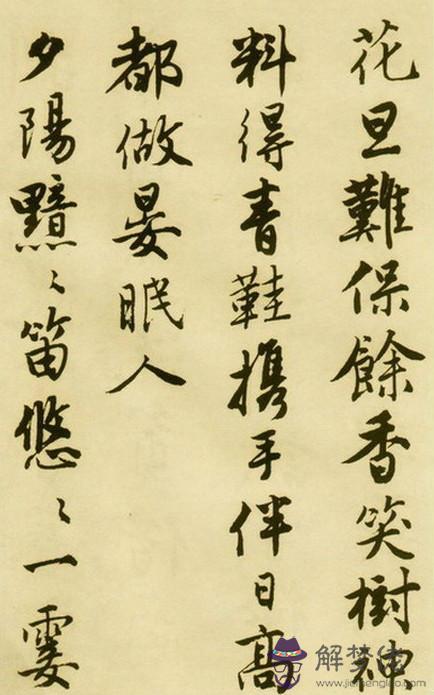 花旦難保餘香笑樹神
料得青鞋携手伴日高
都做晏眠人
夕陽黯〻笛悠〻一霎
解梦佬
www.jiemenglao.com